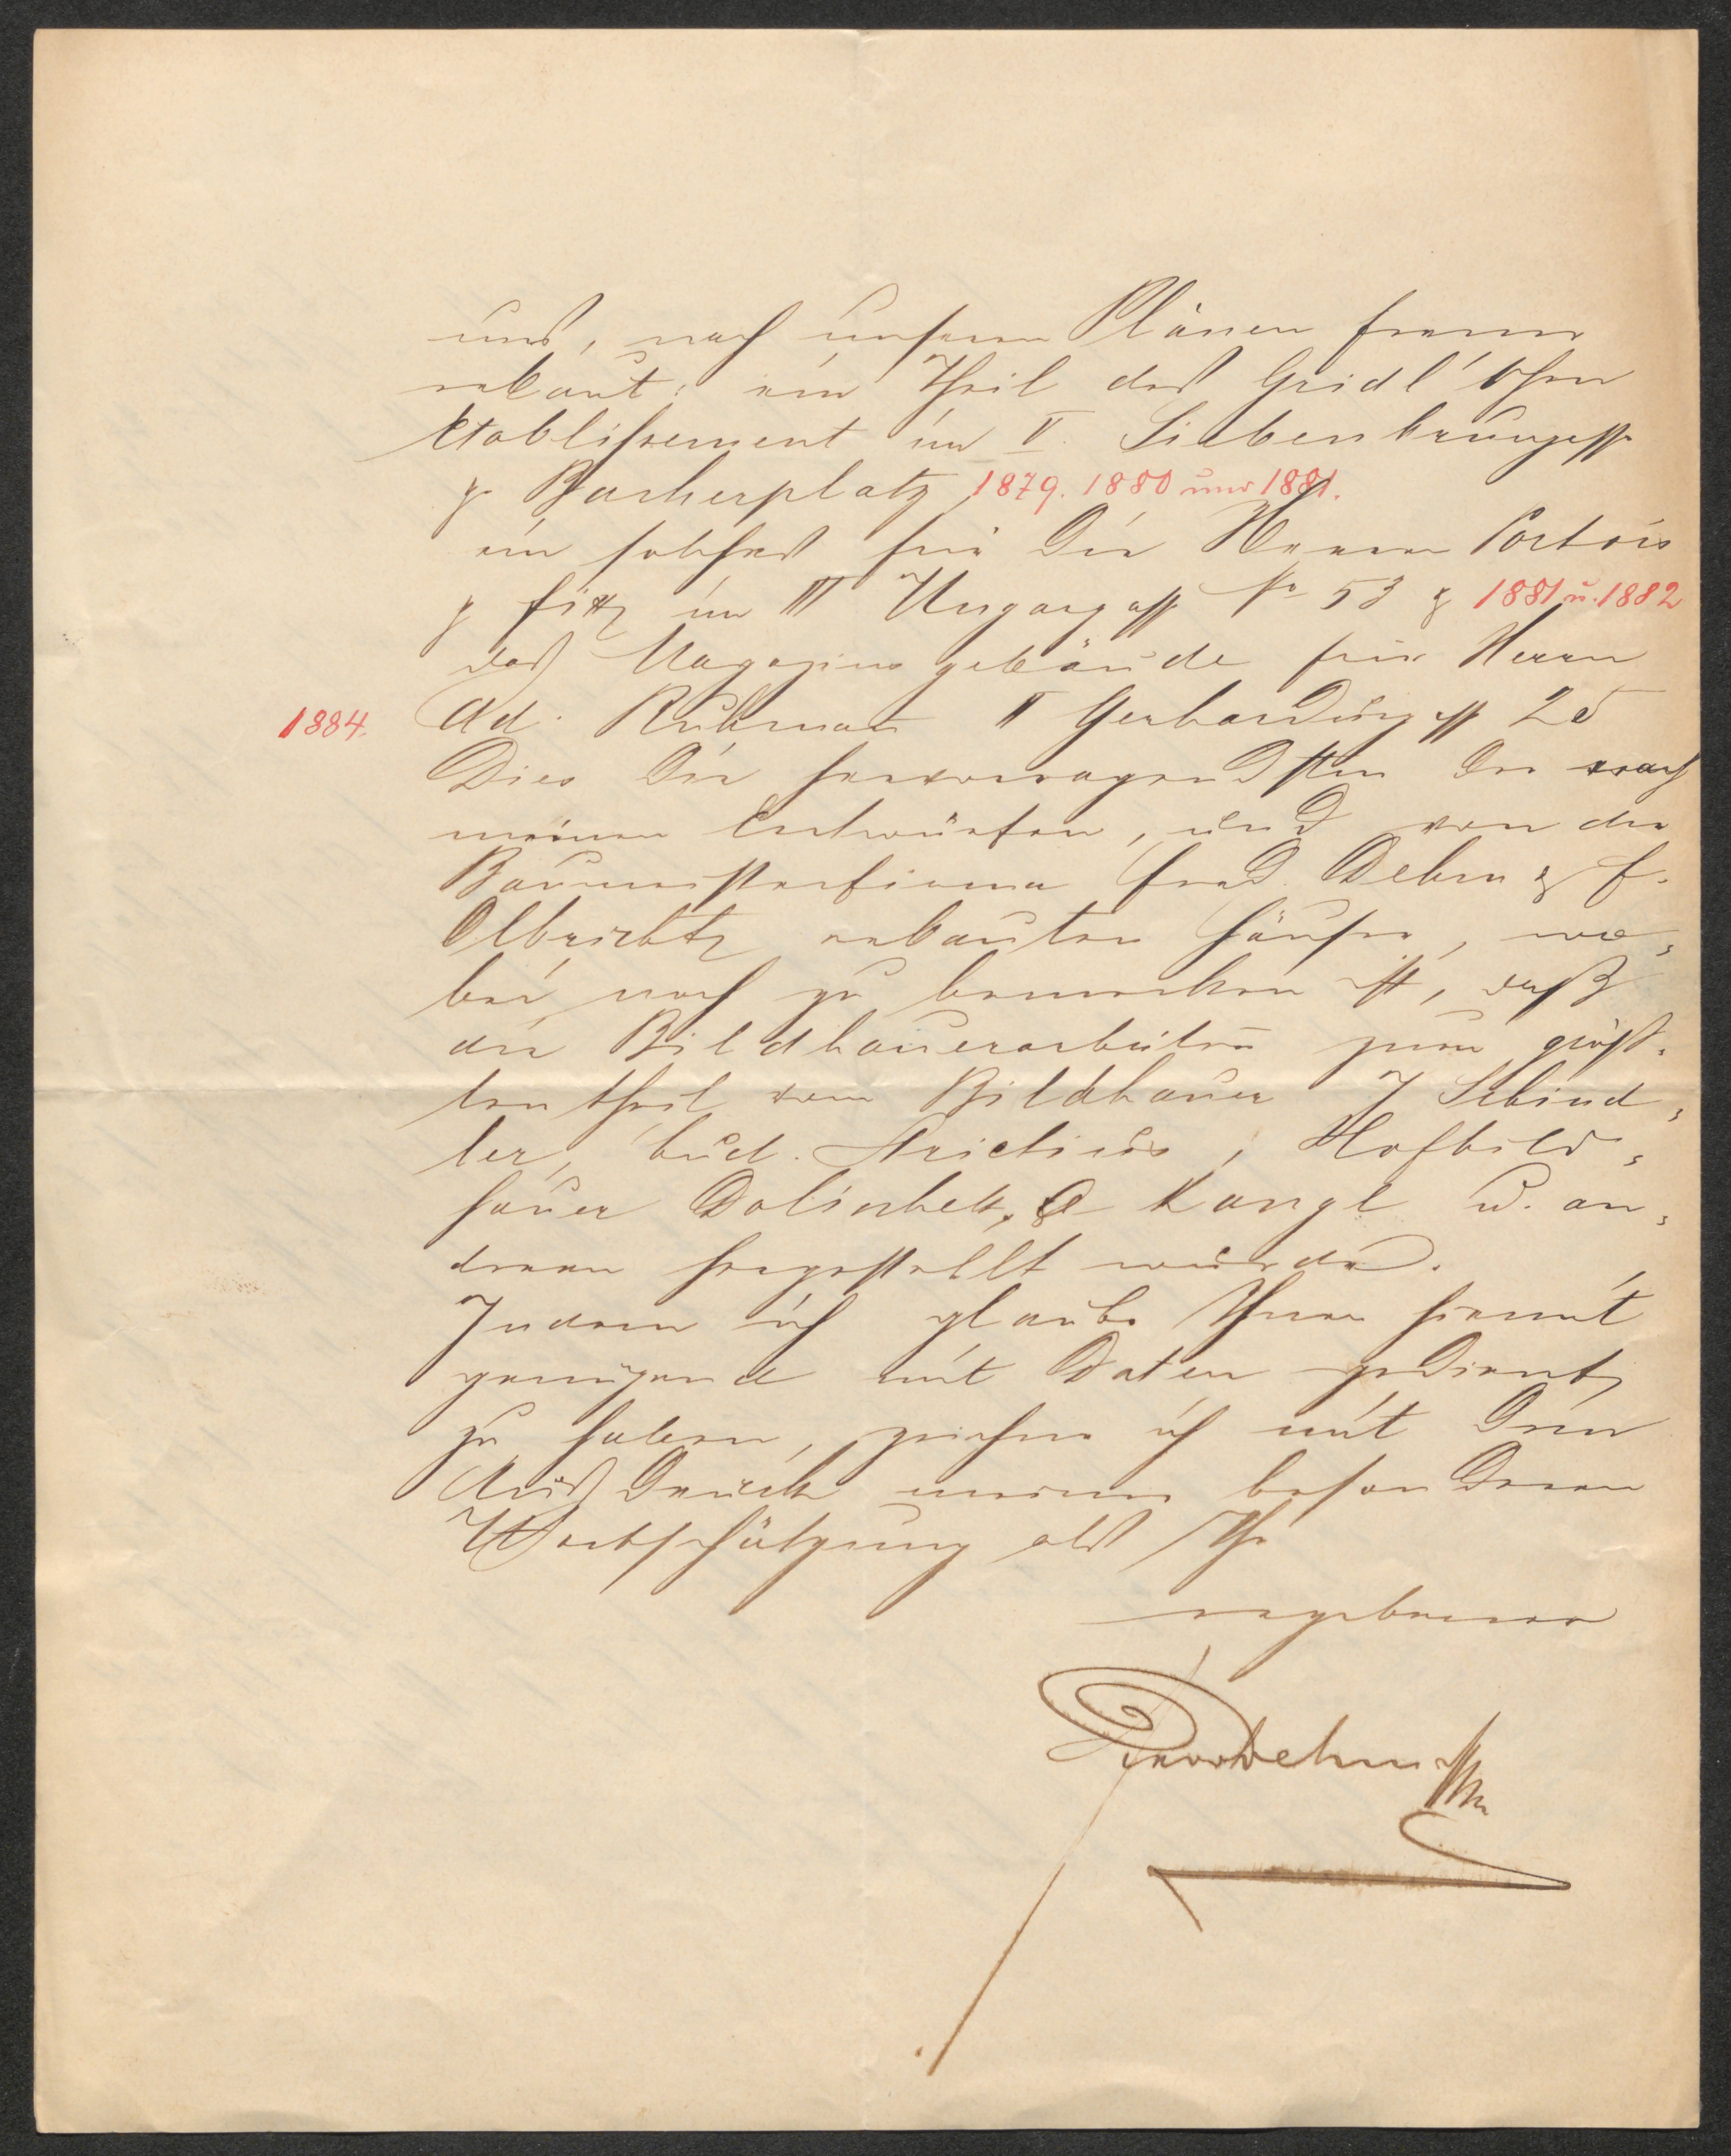 uns, nach unseren Plänen ferner
erbaut: ein Theil des Gridl'schen
Etablissement im V. Siebenbrunngasse
& Bacherplatz 1879. 1880 und 1881.
ein solches für die Herren Portois
& Fix im III Ungargasse No 53 & 1881 u. 1882
das Magazinsgebäude für Herrn
1884. Ad. II Gerhardusgasse 25
Dies die hervorragendsten der nach
meinen Entwürfen, und von der
Baumeisterfirma Ferd. Dehm & F.
Olbricht erbauten Häuser, wo-
bei noch zu bemerken ist, daß
die Bildhauerarbeiten zum größ-
tentheil vom Bildhauer J Schind-
ler, Hofbild-
hauer & Kangl u. an-
deren hergestellt wurde.
Indem ich glaube Ihnen hiemit
genügend mit Daten gedient
zu haben, zeichne ich mit dem
Ausdrucke meiner besonderen
Wertschätzung als Ihr
ergebener
Ferd Dehm